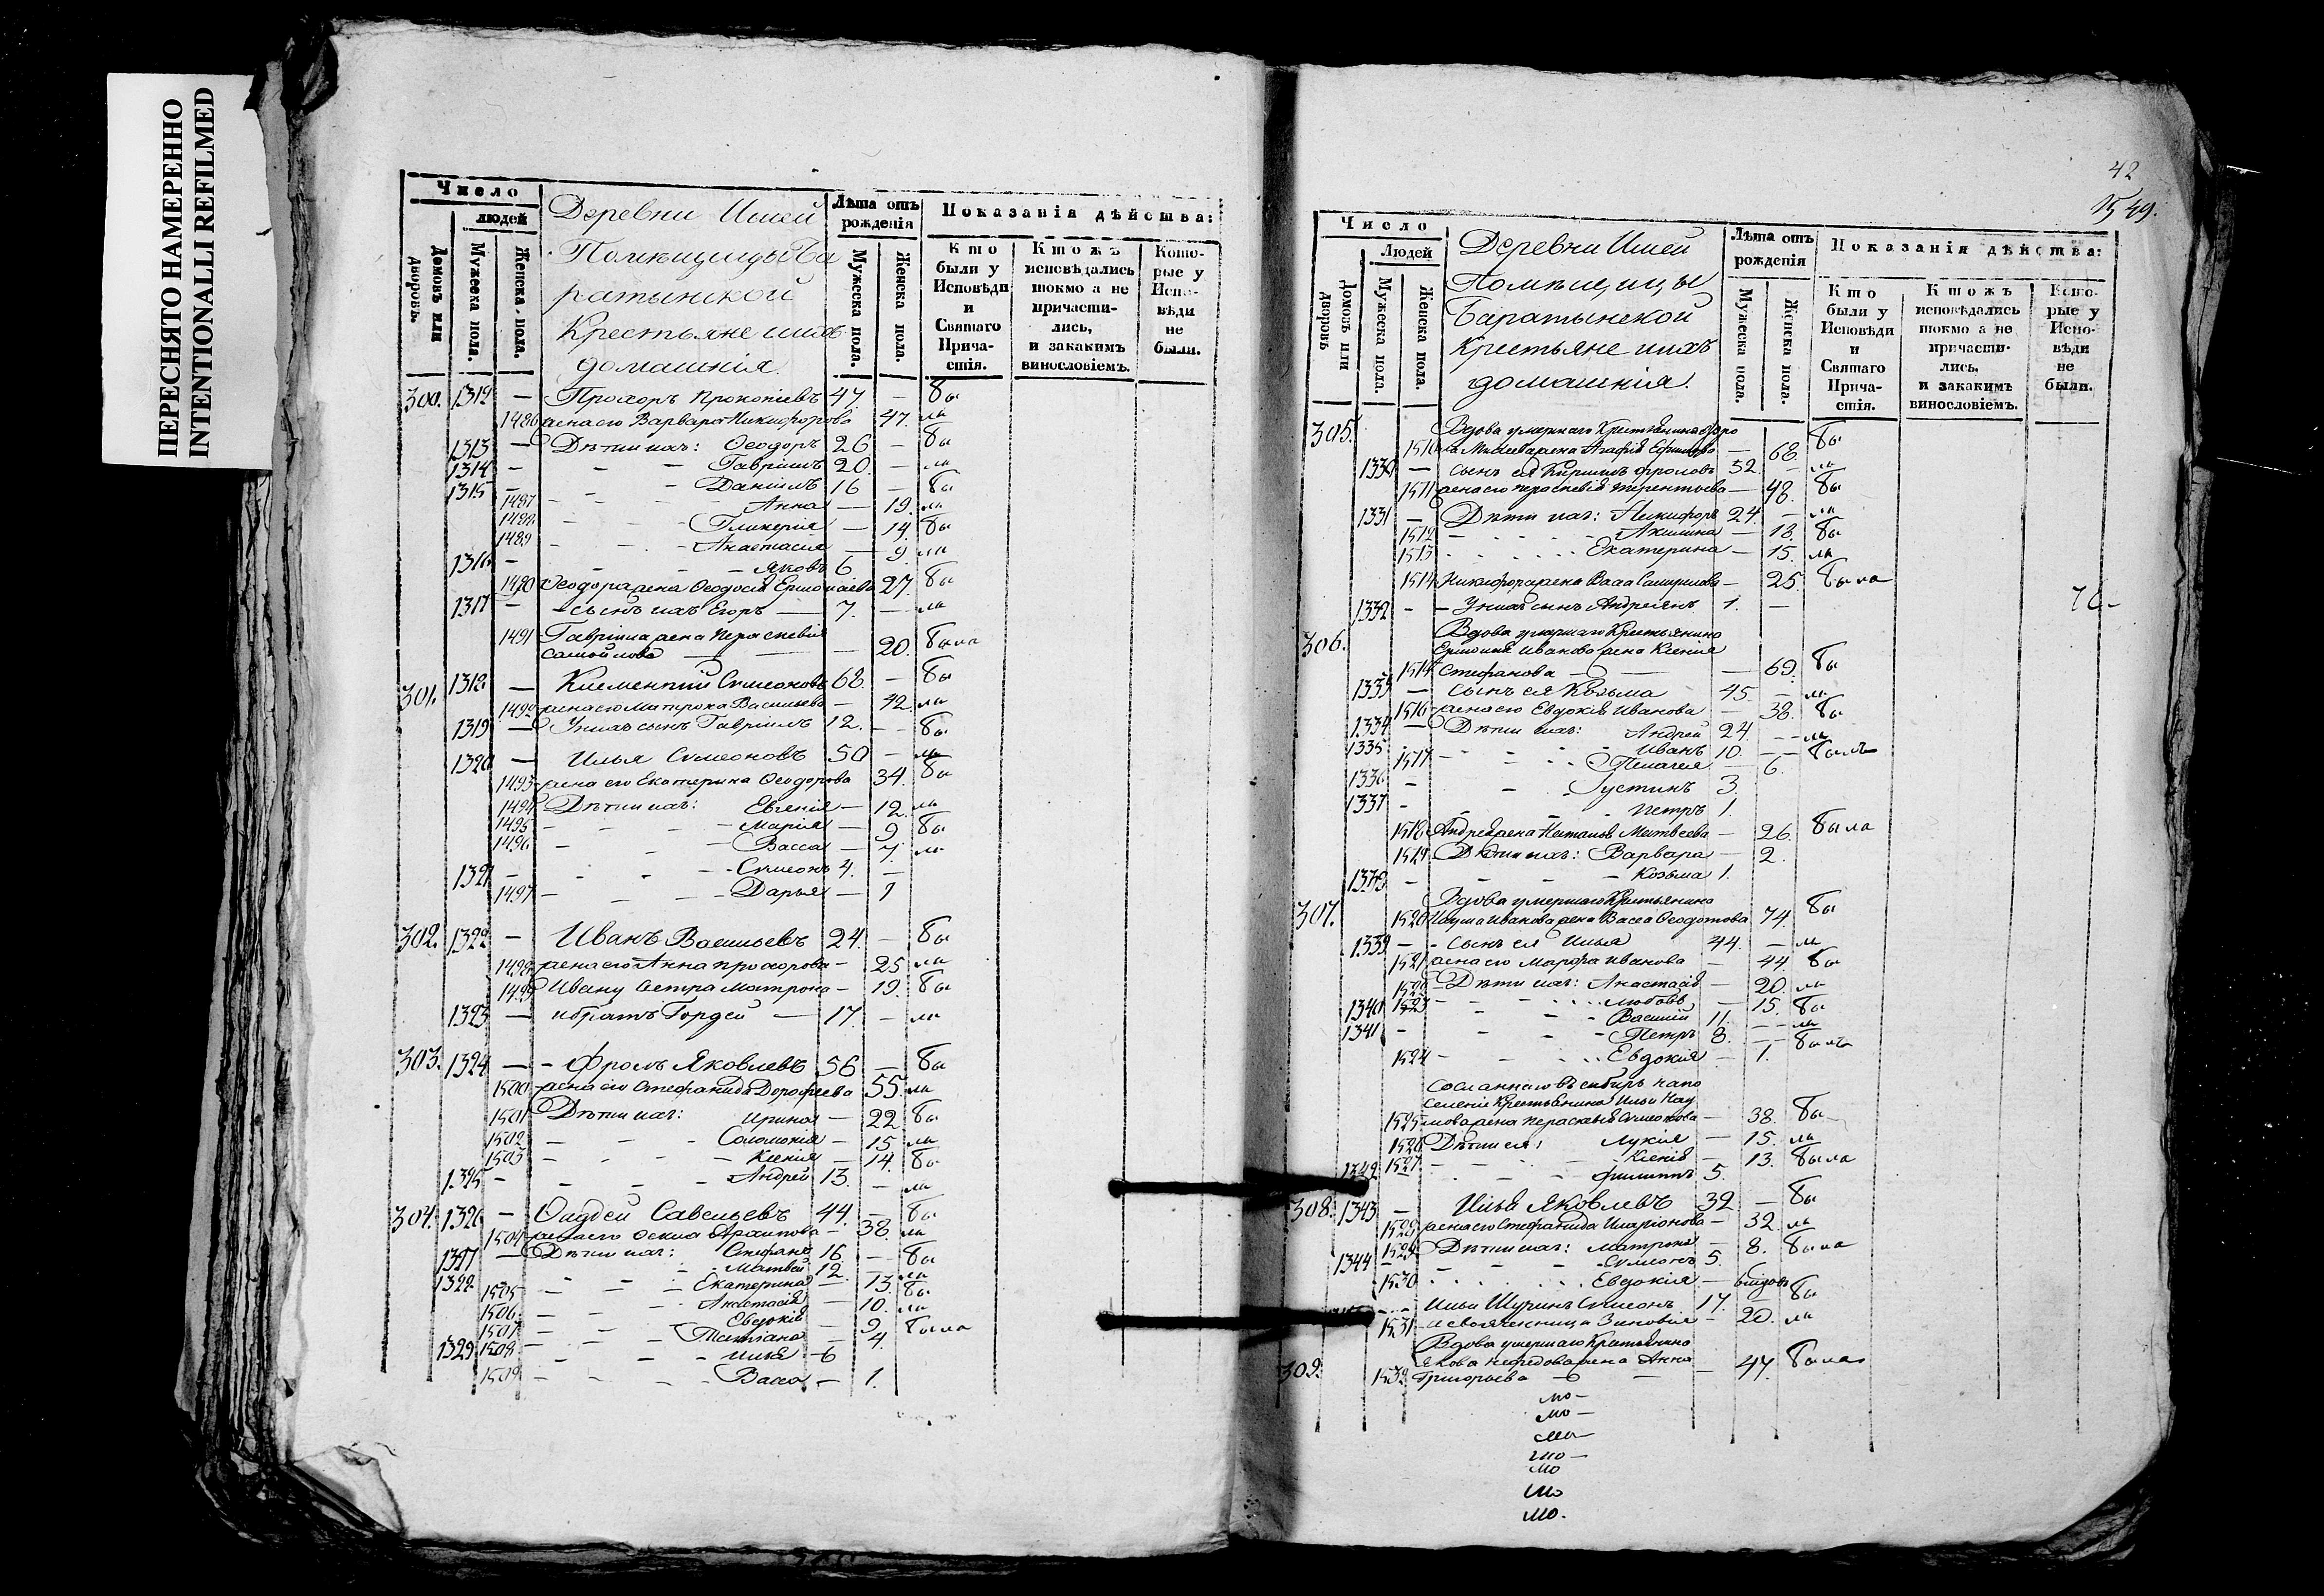 ПЕРЕСНЯТО НАМЕРЕННО
INTENTIONALLI REFILMED
Число
людей
Домовъ или дворовъ.
Мужеска пола.
Женска пола.
Деревни Ишей
Помѣщицы Ба
ратынской
Крестьяне ихъ
домашнія.
Лѣта отъ рожденія
Мужеска пола.
Женска пола.
Показанія дѣйства:
Кто были у Исповѣди и Святаго Прича- стія.
Ктожъ исповѣдались токмо а не причасти- лись, и закакимъ винословіемъ.
Кото- рые у Испо- вѣди не были.
300. 1312 — Прохоръ Прокопіевъ 47 — бы
1486 жена его Варвара Никифорова 47. ли
1313 — Дѣти ихъ: Ѳеодоръ 26 — бы
1314 — Гавріилъ 20. — ли
1315 — Даніилъ 16 — бы
1487 Анна — 19. ли
1488 Гликерія — 14. бы
1489 Анастасія — 9. ли
1316 — Яковъ 6
1490 Ѳеодора жена Ѳеодосія 27. бы
1317 — сынъ ихъ Егоръ — 7. — ли
1491 Гавріила жена Параскевія
Самойлова — 20. была
301. 1318 — Климентій Симеоновъ 68. — бы
1492 жена его Матрона Васильева — 42. ли
1319 — У нихъ сынъ Гавріилъ 12. — бы
1320 — Илья Симеоновъ 50 — ли
1493 жена его Екатерина Ѳеодорова 34. бы
1494 Дѣти ихъ: Евгенія — 12. ли
1495 Марія — 9 бы
1496 Васса — 7. ли
1321 — Симеонъ 4. —
1497 Дарья — 1
302. 1322 — Иванъ Васильевъ 24. — бы
1498 жена его Анна Прохорова — 25 ли
1499 Ивану сестра Матрона — 19. бы
1323 — и братъ Гордей — 17. — ли
303. 1324 — Фролъ Яковлевъ 56 — бы
1500 жена его Стефанида Дорофеева 55. ли
1501 Дѣти ихъ: Ирина — 22 бы
1502 Соломонія — 15 ли
1503 Ксенія — 14. бы
1325 — Андрей 13. — ли
304. 1326 — Ѳаддей Савельевъ 44. — бы
1504 жена его Архипова — 38. ли
1327 — Дѣти ихъ: Стефанъ 16 — бы
1328 Матвей 12. — ли
1505 Екатерина — 13. бы
1506 Анастасія — 10. ли
1507 Евдокія — 9. была
1508 Татіана — 4.
1329 Илья 6
1509 Васса — 1.
42
49.
Число
Людей
Домовъ или дворовъ
Мужеска пола.
Женска пола.
Деревни Ишей
Помѣщицы
Баратынской
Крестьяне ихъ
домашнія.
Лѣта отъ рожденія
Мужеска пола.
Женска пола.
Показанія дѣйства:
Кто были у Исповѣди и Святаго Прича- стія.
Ктожъ исповѣдались токмо а не причасти- лись, и закакимъ винословіемъ.
Кото- рые у Испо- вѣди не были.
305. Вдова умершаго Крестьянина Фро
1510 ла жена Агафія Ефимова — 68. бы
1330 — сынъ ея Кириллъ Фроловъ 52. — ли
1511 жена его Параскевія Терентьева — 48. бы
1331 — Дѣти ихъ: Никифоръ 24. — ли
1512 Акилина — 18. бы
1513 Екатерина — 15. ли
1514 Никифора жена Васса — 25. была
1332 — У нихъ сынъ Андреянъ 1. —
76
306. Вдова умершаго Крестьянина
Иванова жена Ксенія
Стефанова — 69. бы
1333 — сынъ ея Козьма 45. — ли
1516 жена его Евдокія Иванова — 38. бы
1334 — Дѣти ихъ: Андрей 24. — ли
1335 Иванъ 10. — былъ
1517 Пелагея 6.
1336 — Іустинъ 3.
1337 — Петръ 1.
1518 Андрея жена Наталья Матвеева — 26. была
1519 Дѣти ихъ: Варвара — 2.
Козьма 1.
307. Вдова умершаго Крестьянина
1520 Наума Иванова жена Васса Ѳеодотова 74. бы
1339 — сынъ ея Илья 44. — ли
1521 жена его Марфа Иванова — 44. бы
1522 Дѣти ихъ: Анастасія — 20. ли
1340 1523 Любовь — 15. бы
Василій 11. — ли
1341 — Петръ 8. — былъ
1524 Евдокія — 1.
Сосланнаго въ сибирь на по
селеніе Крестьянина Ильи Нау
1525 мова жена Параскевія Симеонова — 38. бы
1526 Дѣти ея: Лукія — 15. ли
1527 Ксенія — 13. была
1342 Филиппъ 5.
308. 1343 — Илья Яковлевъ 32 — бы
1528 жена его Стефанида Иларіонова — 32. ли
1529 Дѣти ихъ: Матрона — 8. была
1344 — Симеонъ 5.
1530 Евдокія —
Ильи Шуринъ Симеонъ 17. — бы
1531 и свояченица Зиновія — 20. ли
Вдова умершаго Крестьянина
309. Якова жена Анна
1532 Григорьева — 47. была